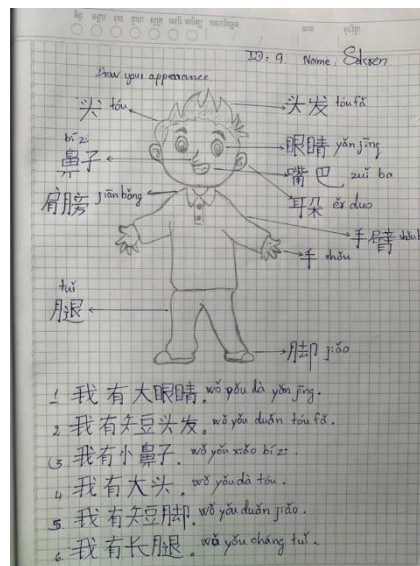 ID: 9 Name:
Draw your appearance.
头 tóu
头发 tóu fǎ
眼睛 yǎn jīng
bí zi
鼻子
嘴巴 zuǐ ba
肩膀 jiān bǎng
耳朵 ěr duo
手臂 shǒu b
手 shǒu
tuǐ
腿
脚 jiǎo
1 我有大眼睛. wǒ yǒu dà yǎn jīng.
2 我有短头发. wǒ yǒu duǎn tóu fǎ.
3 我有小鼻子. wǒ yǒu xiǎo bí zi.
4 我有大头. wǒ yǒu dà tóu.
5 我有短脚. wǒ yǒu duǎn jiǎo.
6 我有长腿. wǒ yǒu cháng tuǐ.